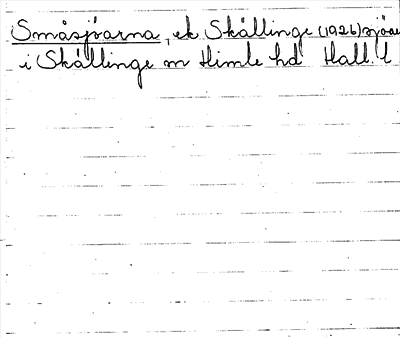 Småsjöarna, ek Skällinge (1926) sjöar
i Skällinge sn Himle hd Hall. l